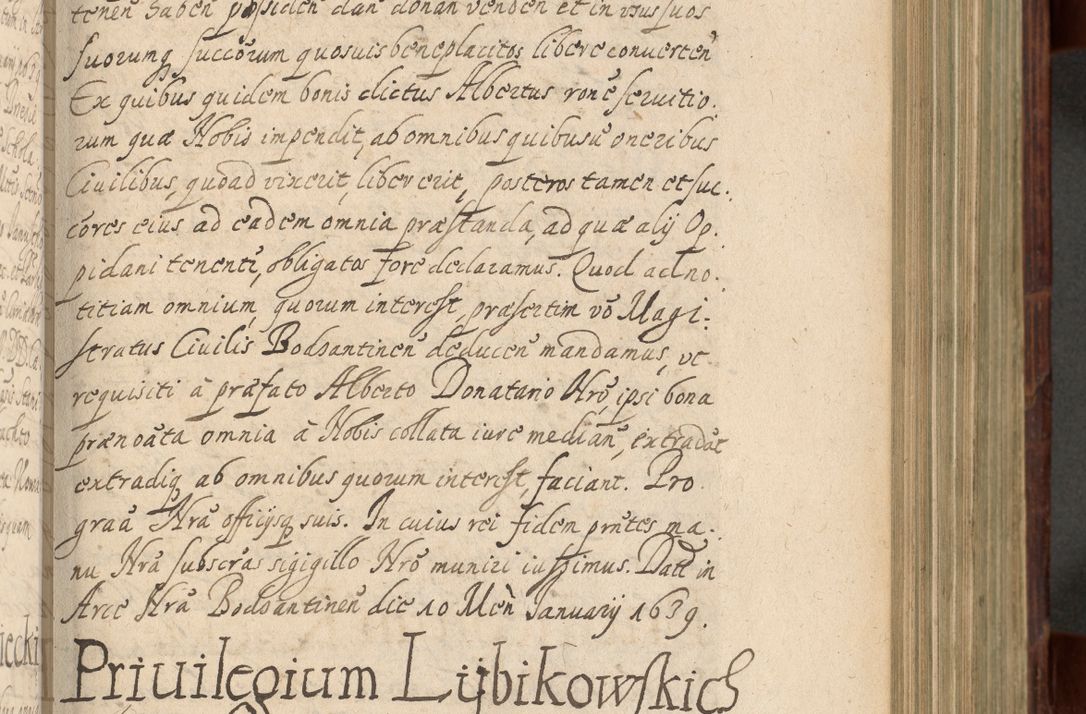 tenen̄ haben̄ possiden̄ dan̄ donan̄ venden̄ et in usus suos
suorumq succōrum quosuis beneplacitos libere conuerten̄
Ex quibus quidem bonis dictus Albertus ronē seruitio:
rum quæ Nobis impendit, ab omnibus quibusuē oneribus
Ciuilibus, quoad vixerit, liber erit, posteros tamen et suc:
cōres eius ad eadem omnia præstanda, ad quæ alij Op:
pidani tenentr̄, obligatos fore declaramus. Quod ad no:
titiam omnium, quorum interest, præsertim vō Magi:
stratus Ciuilis Bodzantinen̄ deducen̄ mandamus, vt
requisiti à præfato Alberto Donatario Nrō, ipsi bona
prænoāta omnia à Nobis collata iure median̄, extradāt
extradiq ab omnibus quorum interest, faciant. Pro
graā Nrā officijsq suis. In cuius rei fidem prn̄tes ma:
nu Nrā subscrās sigigillo Nrō muniri iussimus. Datt in
Arce Nrā Bodzantinen̄ die 10 Men̄ January 1639.
Priuilegium Lijbikowskich